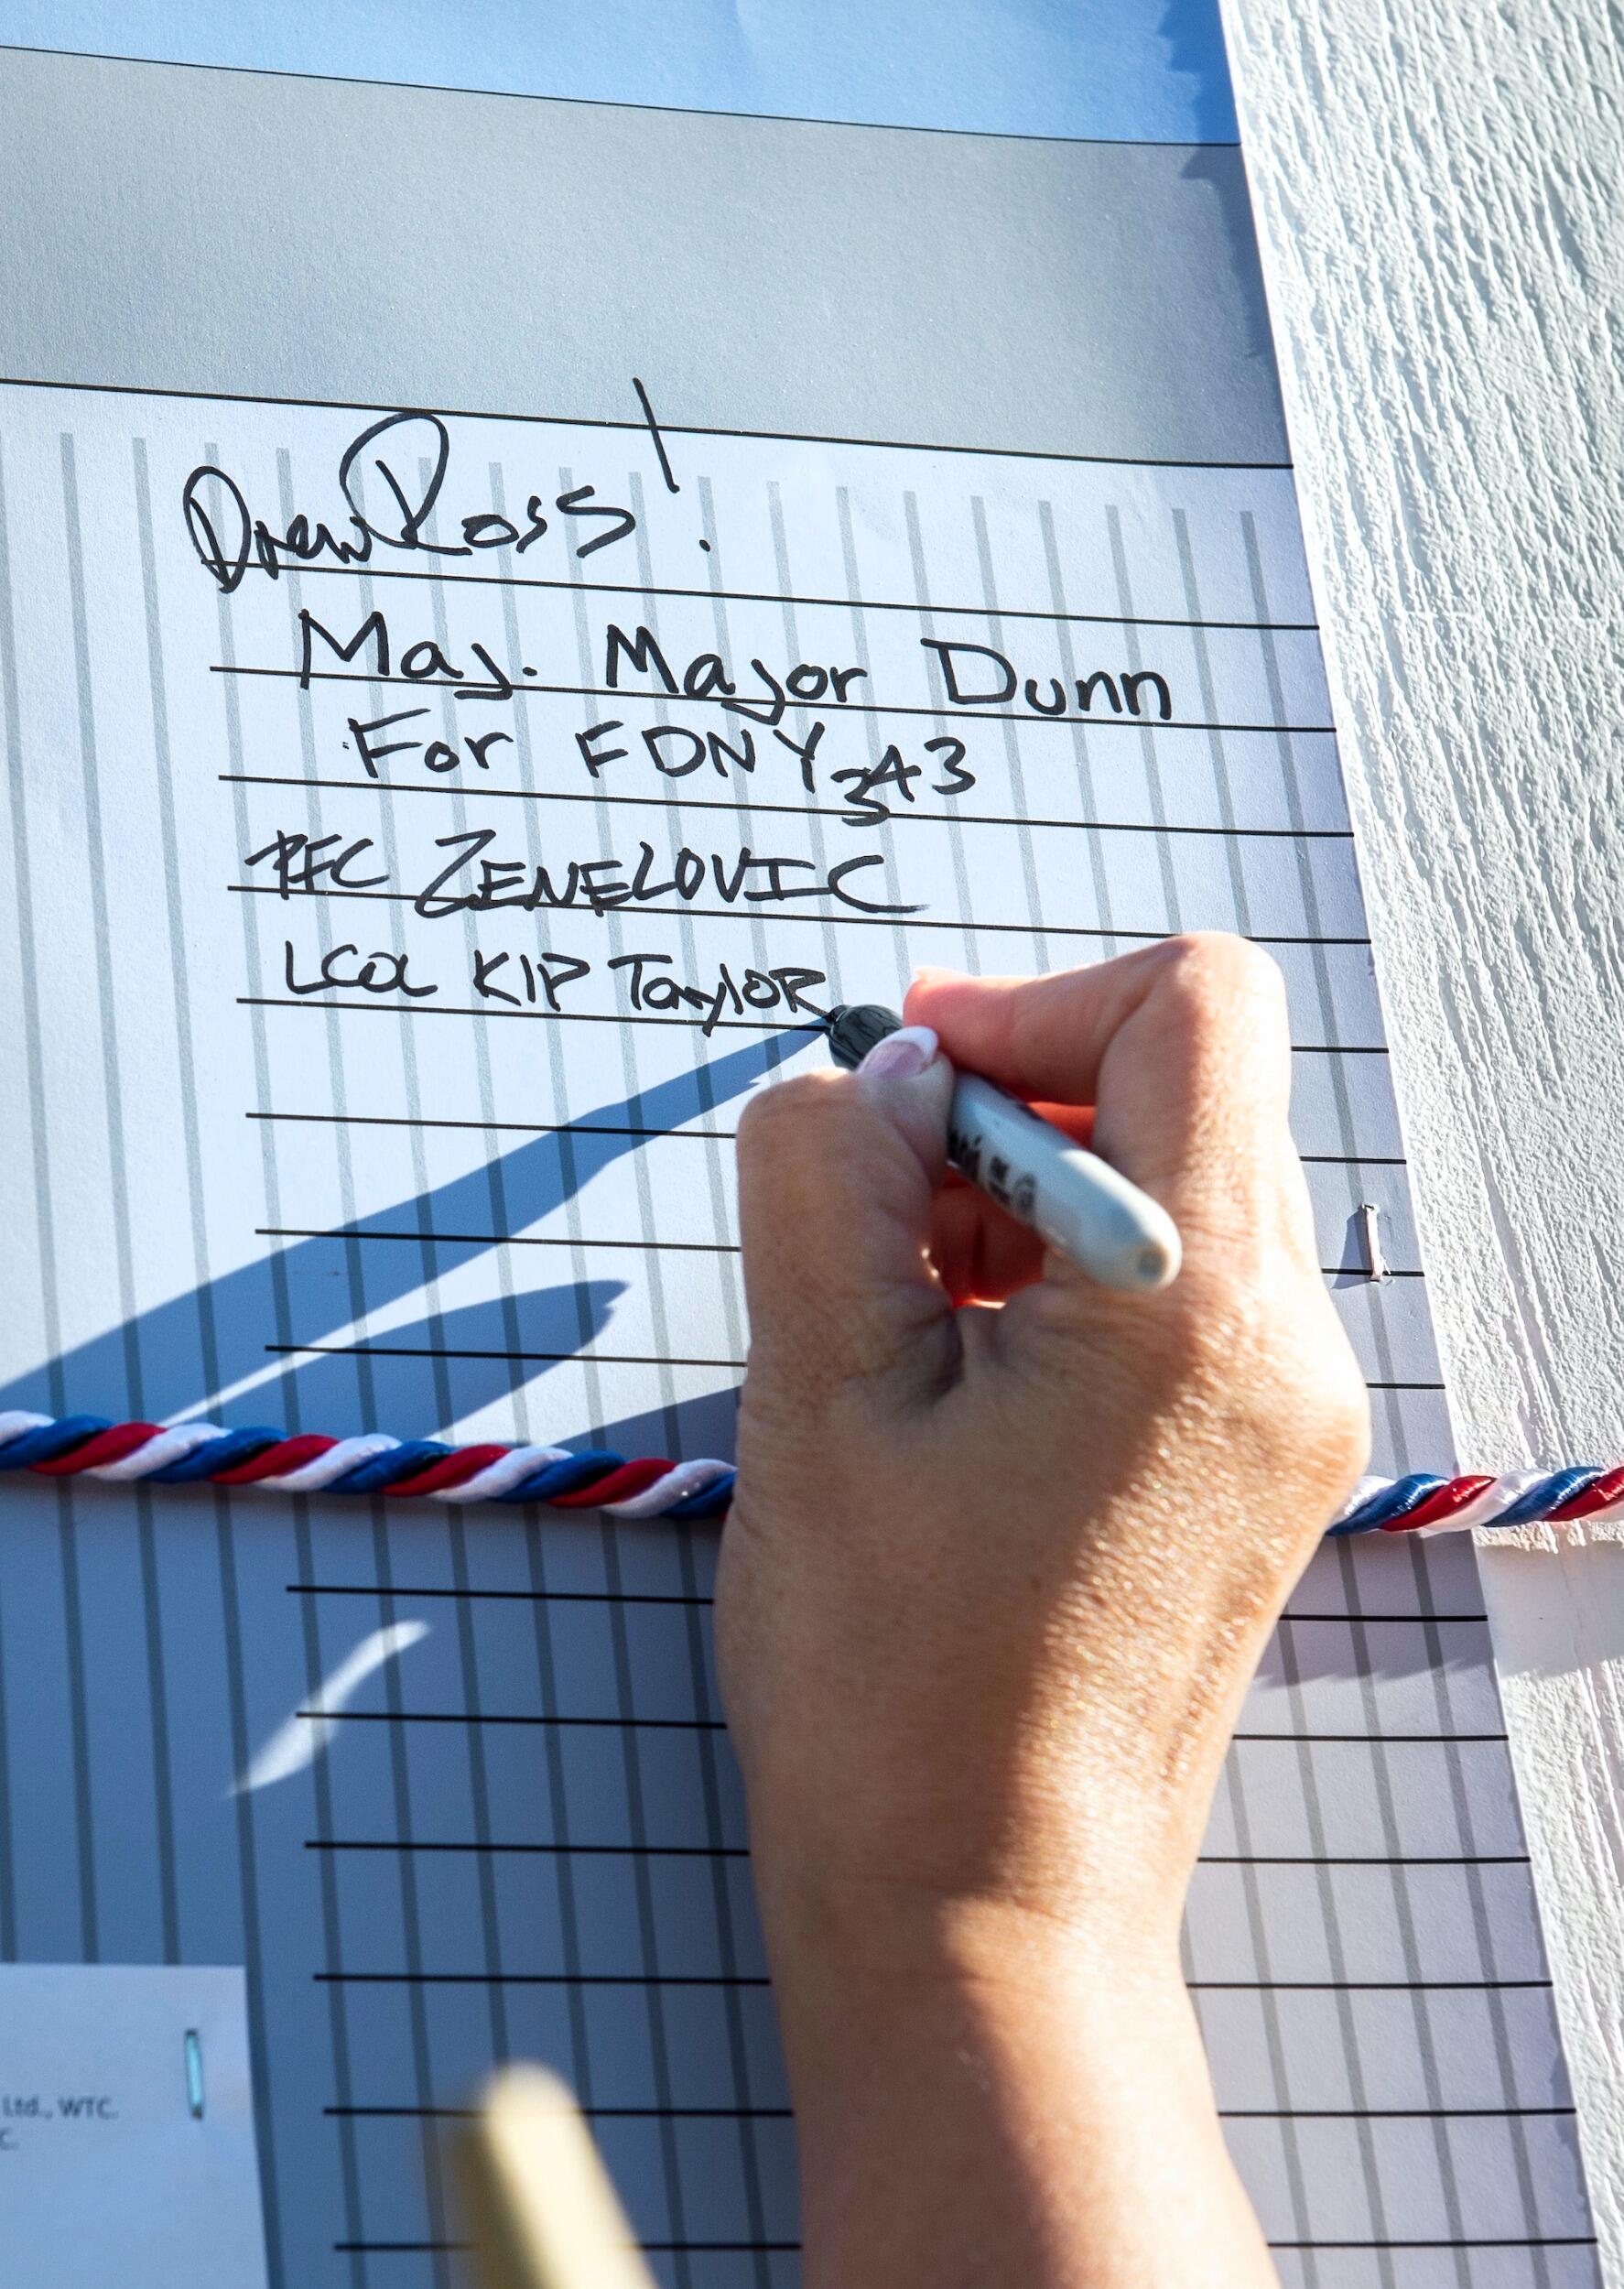 Drew Ross!
Maj. Major Dunn
For FDNY 343
PFC ZENELOVIC
LCol KIP TaylOR
Ltd., WTC.